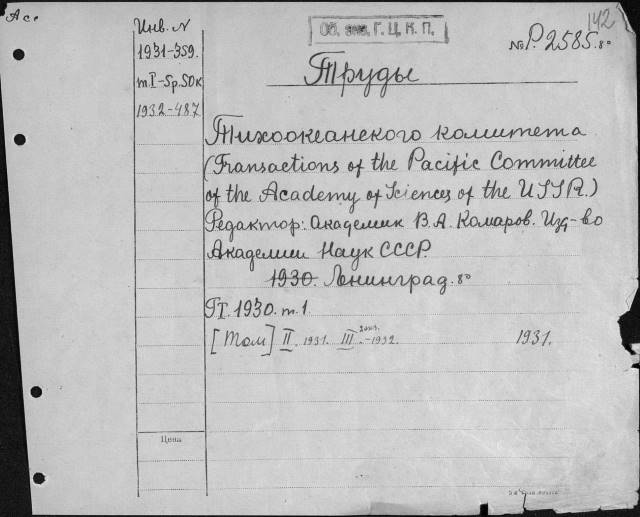 Ас.
142
Инв. N
Об. экз. Г. Ц. К. П.
№ Р. 2585.8°
1931-359.
т I-5р.50к
1932-487
Труды
Тихоокеанского комитета
(Transactions of the Pacific Committee
of the Academy of Sciences of the USSR.)
Редактор: академик В.А. Комаров. Изд-во
Академии Наук СССР.
1930. Ленинград. 8°
1930. т. 1.
[Том] II. 1931. III. -1932. 1931.
Цена